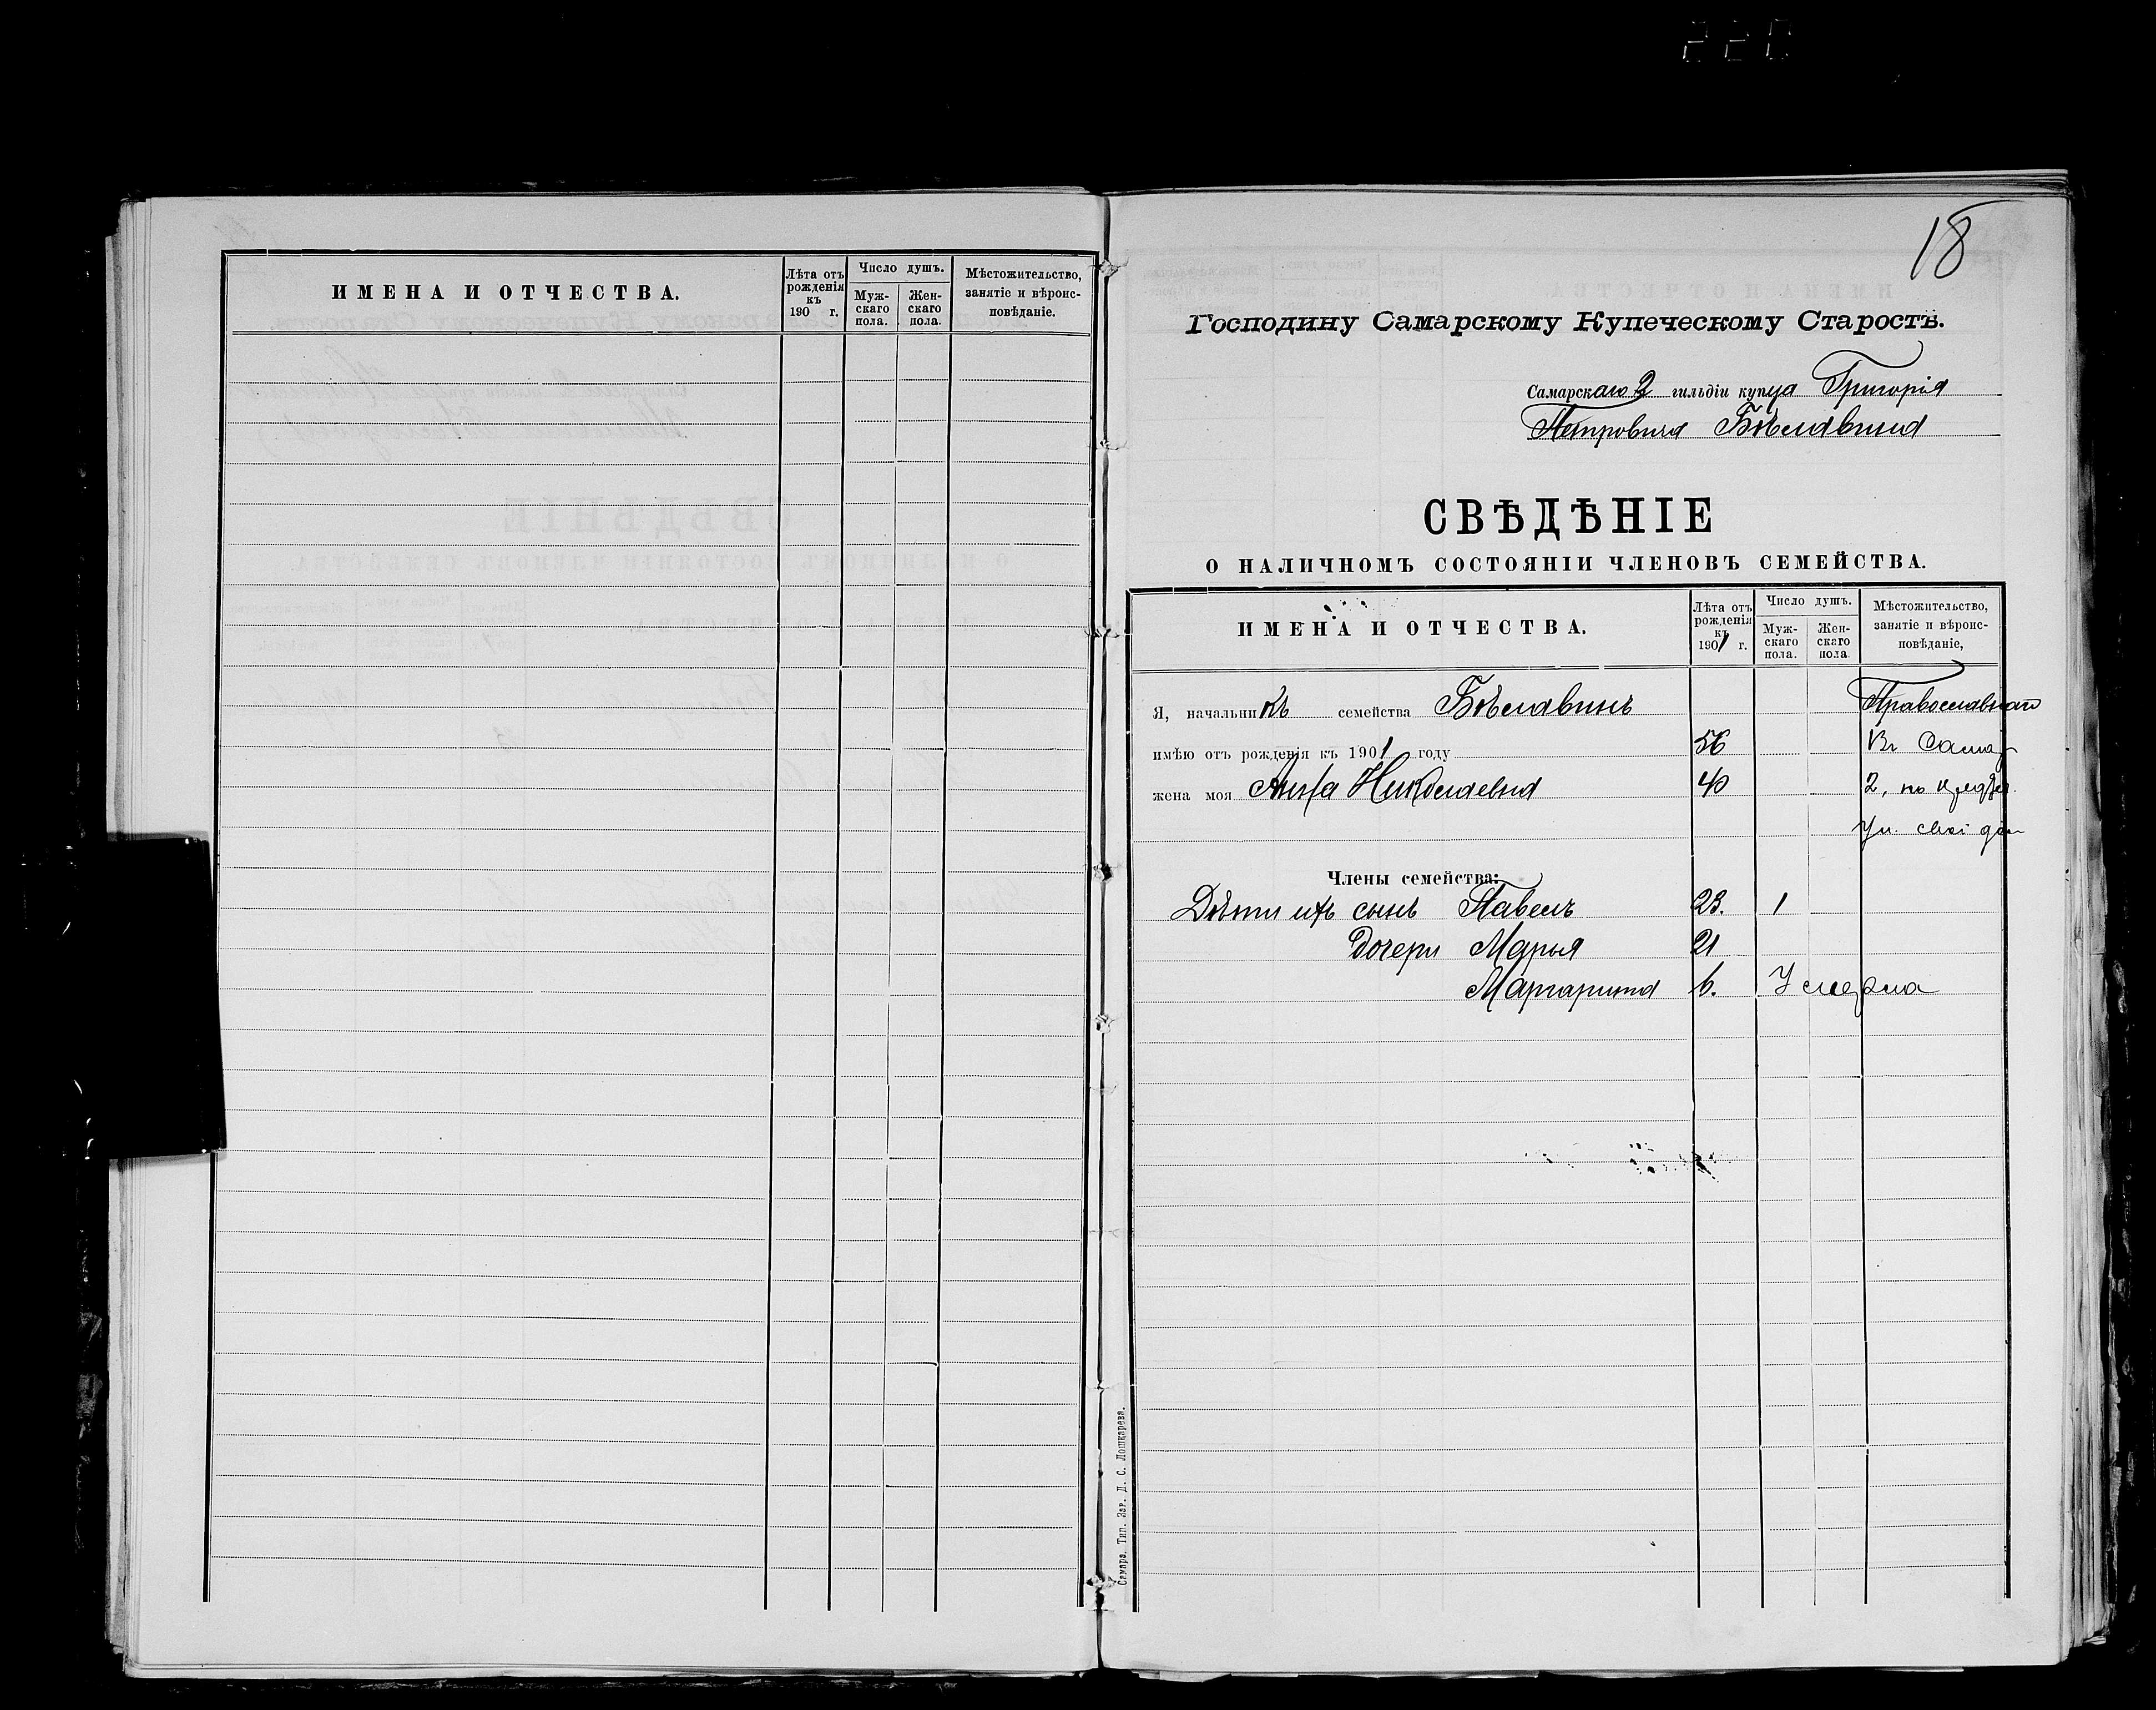 220
ИМЕНА И ОТЧЕСТВА.
Лѣта отъ рожденія къ 190 г.
Число душъ.
Мужскаго пола.
Женскаго пола.
Мѣстожительство, занятіе и вѣроисповѣданіе.
18
Господину Самарскому Купеческому Старостѣ.
Самарскаго 2 гильдіи купца Григорія
Петровича Бѣславина
СВѢДѢНІЕ
О НАЛИЧНОМЪ СОСТОЯНІИ ЧЛЕНОВЪ СЕМЕЙСТВА.
ИМЕНА И ОТЧЕСТВА.
Лѣта отъ рожденія къ 1901 г.
Число душъ.
Мужскаго пола.
Женскаго пола.
Мѣстожительство, занятіе и вѣроисповѣданіе,
Я, начальникъ семейства Бѣславинъ Православнаго
имѣю отъ рожденія къ 1901 году 56 Въ Самар
жена моя Анна Николаевна 40 2, по
Ул. свой дом
Члены семейства:
Дѣти ихъ сынъ Павелъ 23. 1
Дочери Марья 21
Маргарита 6. Умерла
Самара. Тип. Зав. Д. С. Лошкарева.